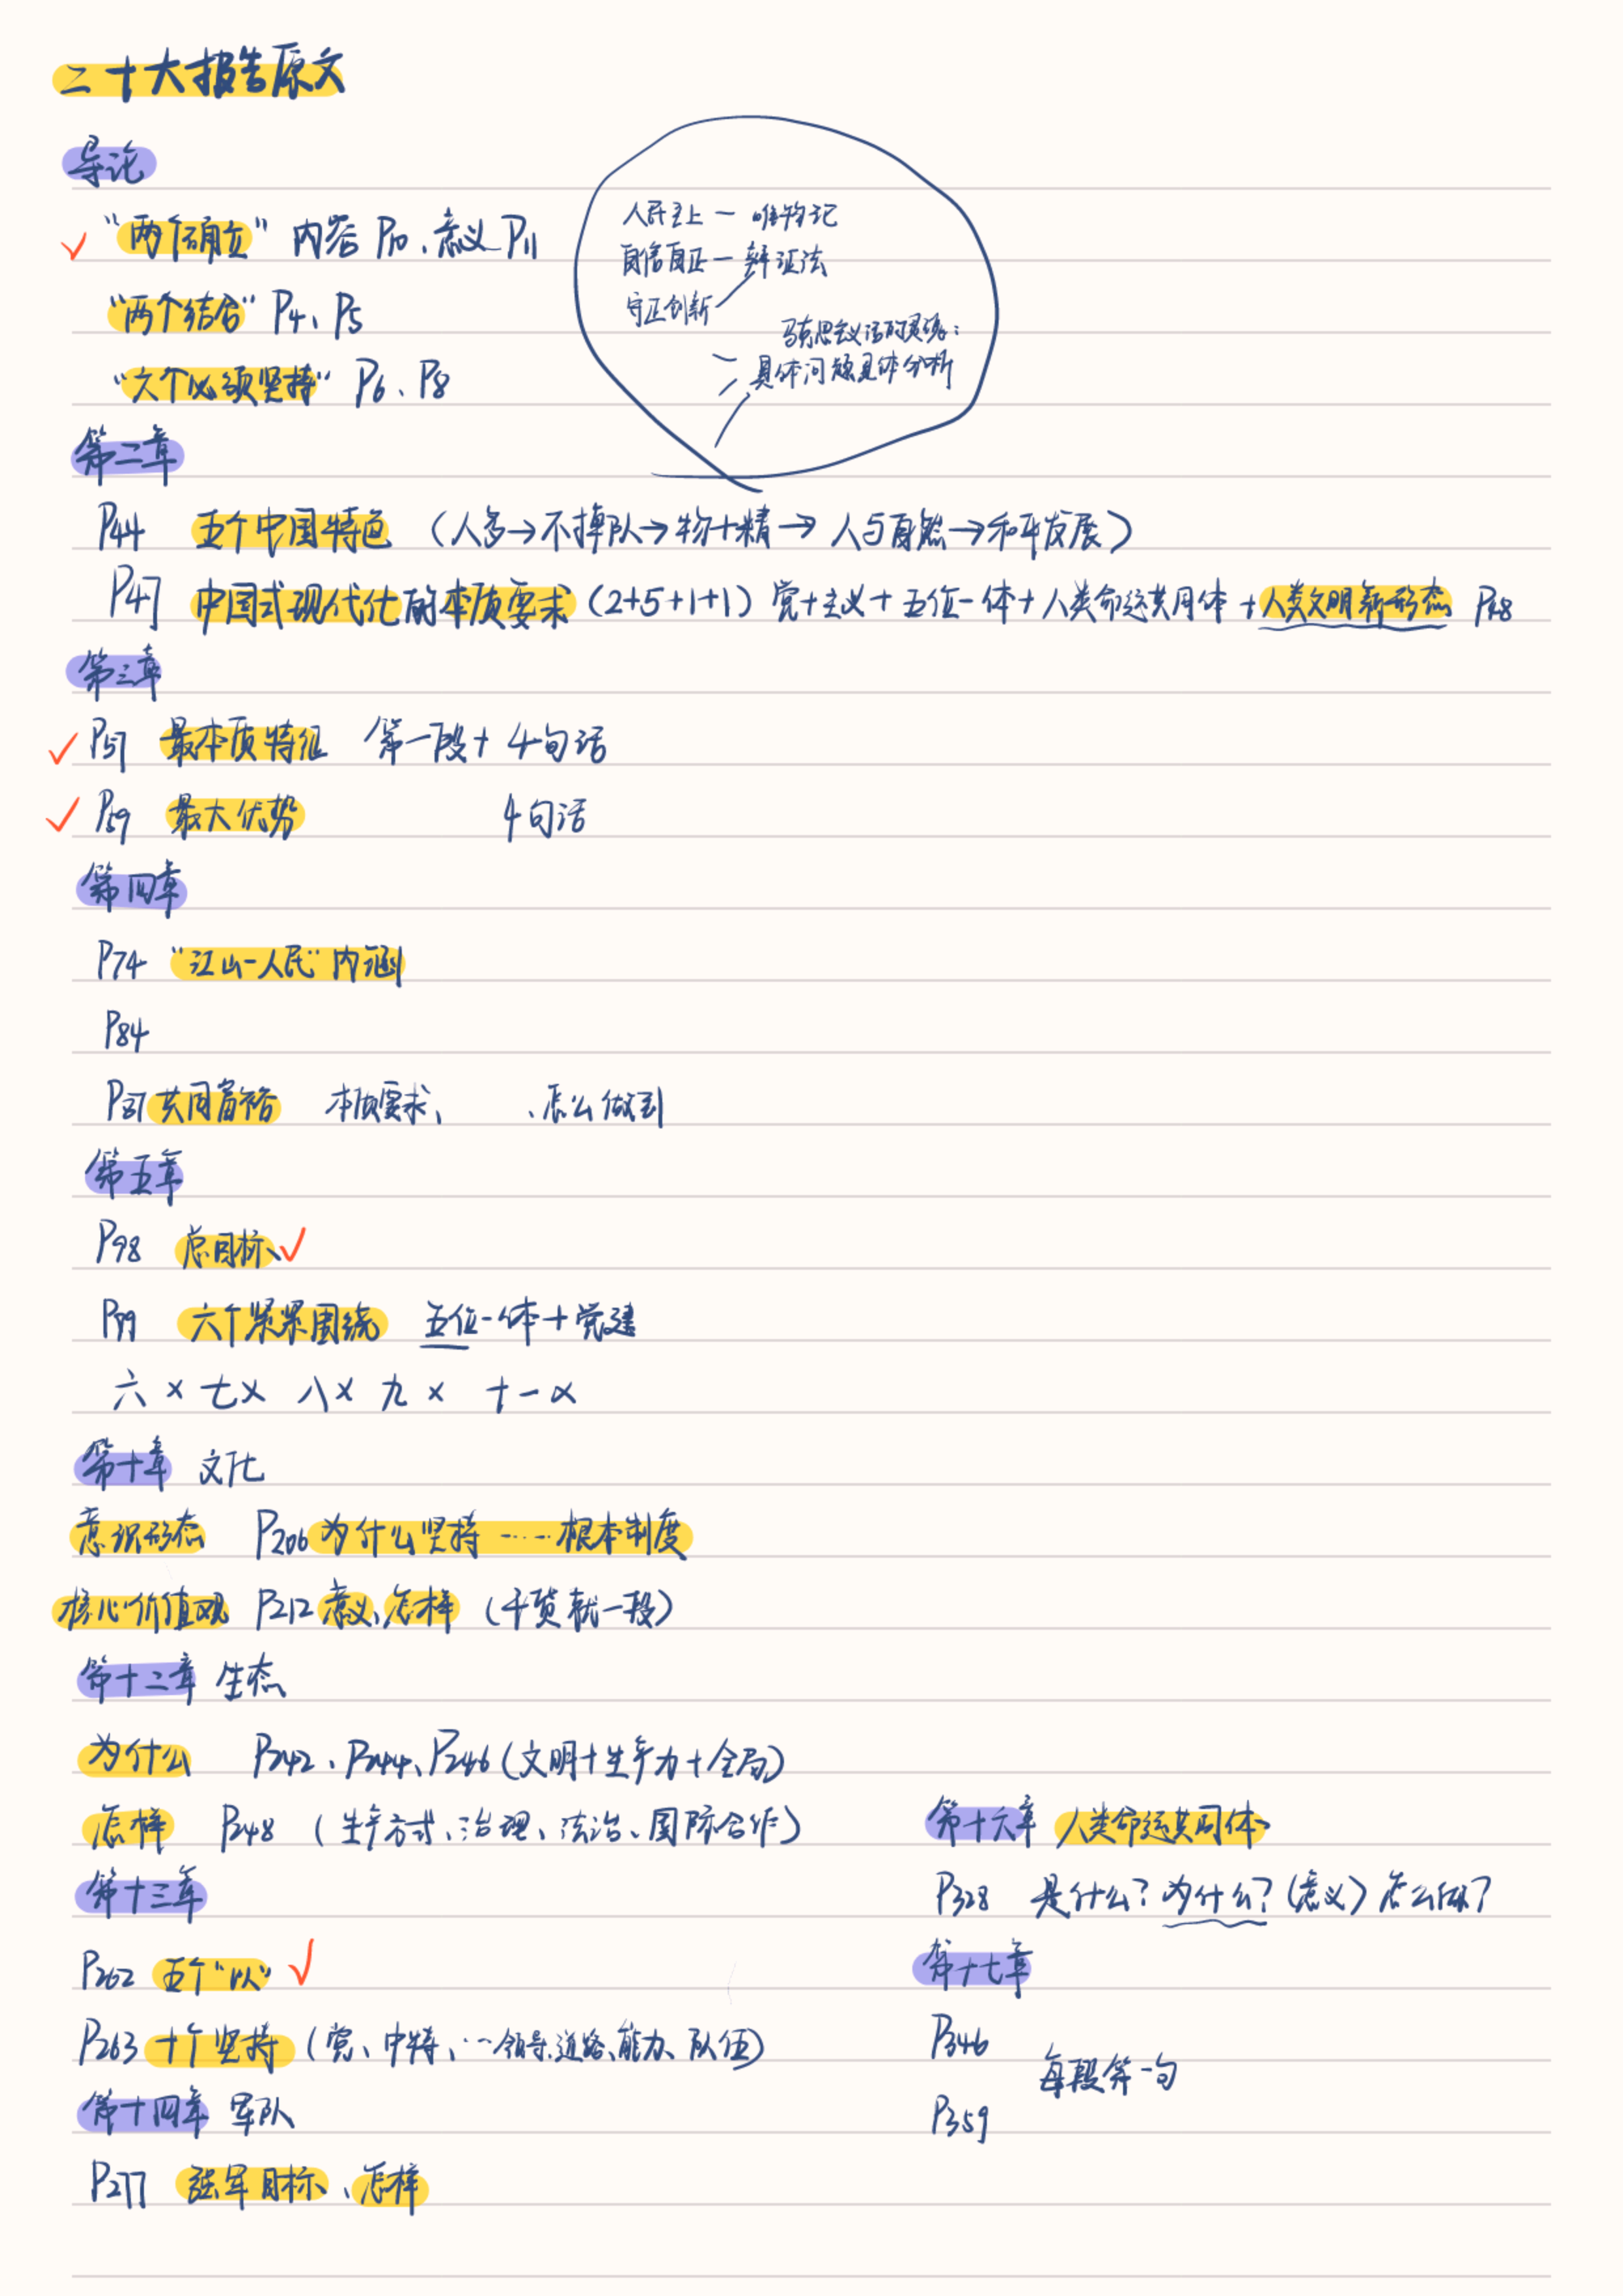 二十大报告原文
导论
“两个确立” 内容 P10、意义 P11
“两个结合” P4、P5
“六个必须坚持” P6、P8
人民至上 — 唯物记
自信自立 — 辩证法
守正创新
马克思主义活的灵魂：
具体问题具体分析
第二章
P44 五个中国特色 （人多→不掉队→物+精→人与自然→和平发展）
P47 中国式现代化的本质要求（2+5+1+1）党+主义+五位一体+人类命运共同体+人类文明新形态 P48
第三章
P57 最本质特征 第一段+ 4句话
P59 最大优势 4句话
第四章
P74 “江山-人民”内涵
P84
P87 共同富裕 本质要求、 、怎么做到
第五章
P98 总目标
P99 六个紧紧围绕 五位一体+党建
六× 七× 八× 九× 十一×
第十章 文化
意识形态 P206 为什么坚持……根本制度
核心价值观 P212 意义、怎样（干货就一段）
第十二章 生态
为什么 P242、P244、P246（文明+生产力+全局）
怎样 P248 （生产方式、治理、法治、国际合作）
第十三章
P262 五个“以”
P263 十个坚持（党、中特、…领导、道路、能力、队伍）
第十四章 军队
P277 强军目标、怎样
第十六章 人类命运共同体
P328 是什么？为什么？（意义）怎么做？
第十七章
P346
每段第一句
P359